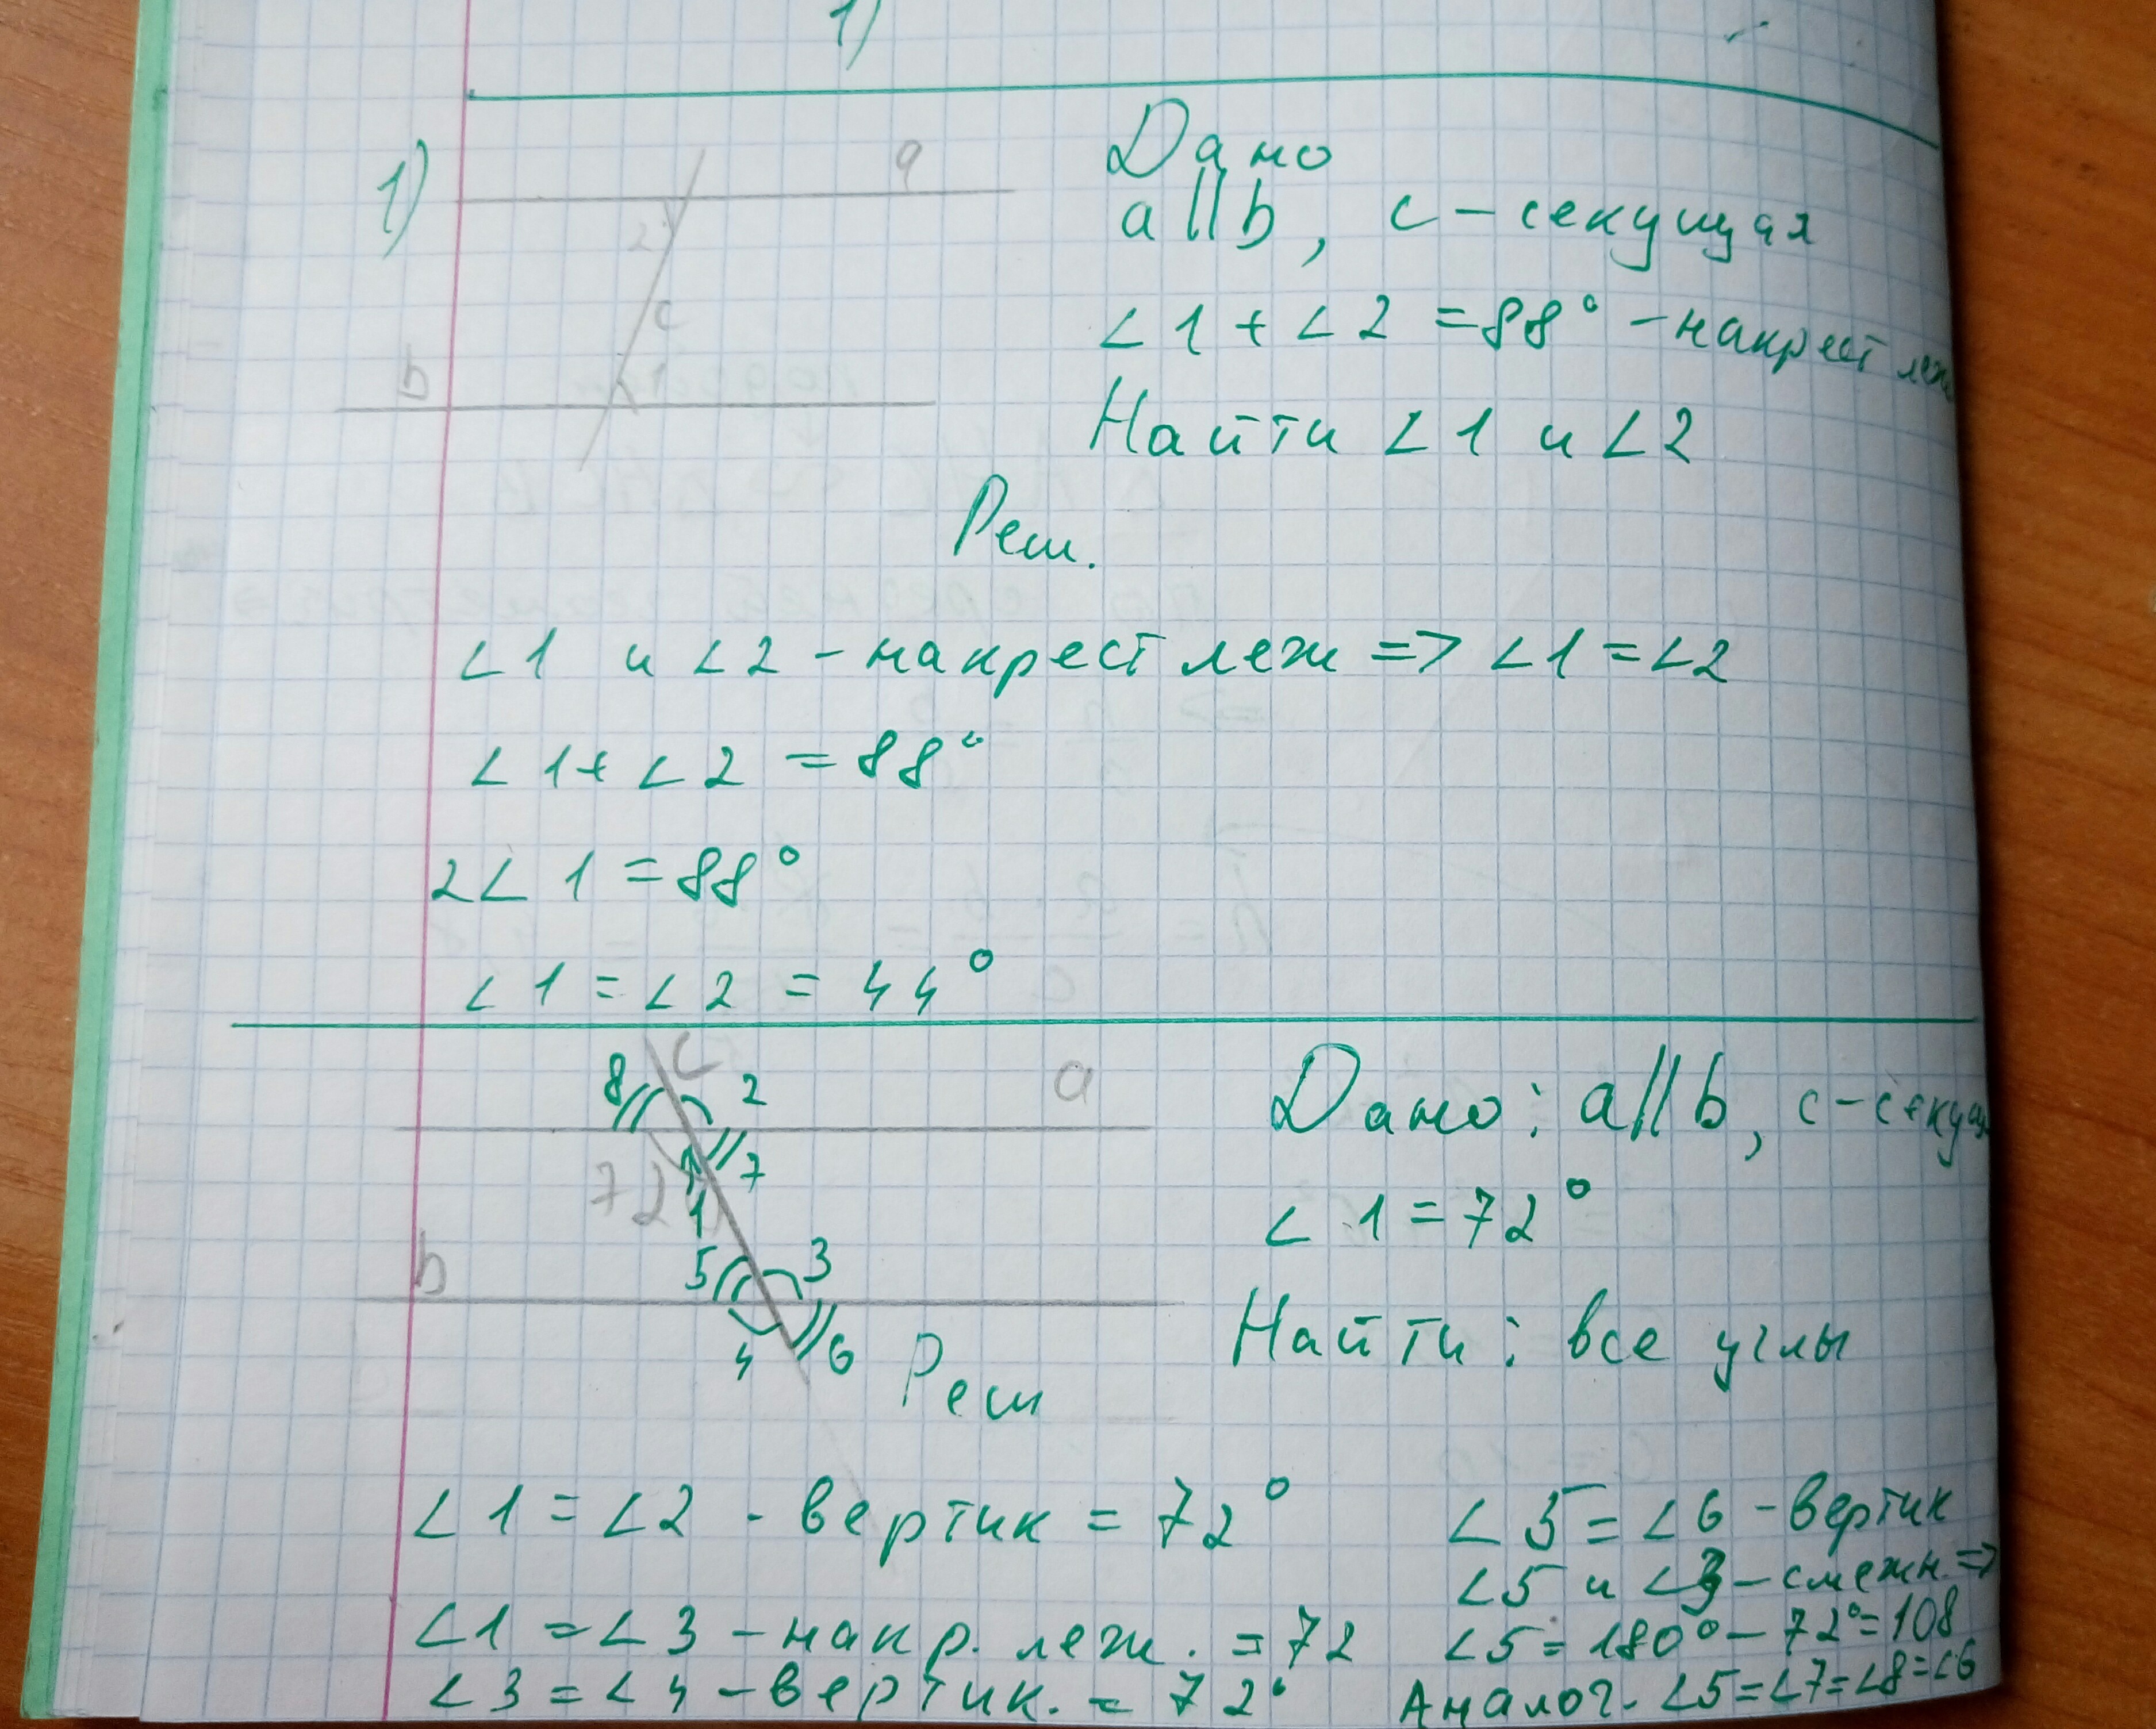 1)
1)
a
Дано
a||b, c - секущая
2
c
∠1 + ∠2 = 88° - накрест леж
b
1
Найти ∠1 и ∠2
Реш.
∠1 и ∠2 - накрест леж => ∠1 = ∠2
∠1 + ∠2 = 88°
2∠1 = 88°
∠1 = ∠2 = 44°
8 c 2 a
Дано: a||b, c - секущ
72 1 7
∠1 = 72°
b 5 3
Найти: все углы
4 6
Реш
∠1 = ∠2 - вертик = 72°
∠1 = ∠3 - накр. леж. = 72
∠3 = ∠4 - вертик. = 72°
∠5 = ∠6 - вертик
∠5 и ∠3 - смежн. =>
∠5 = 180° - 72° = 108
Аналог. ∠5 = ∠7 = ∠8 = ∠6